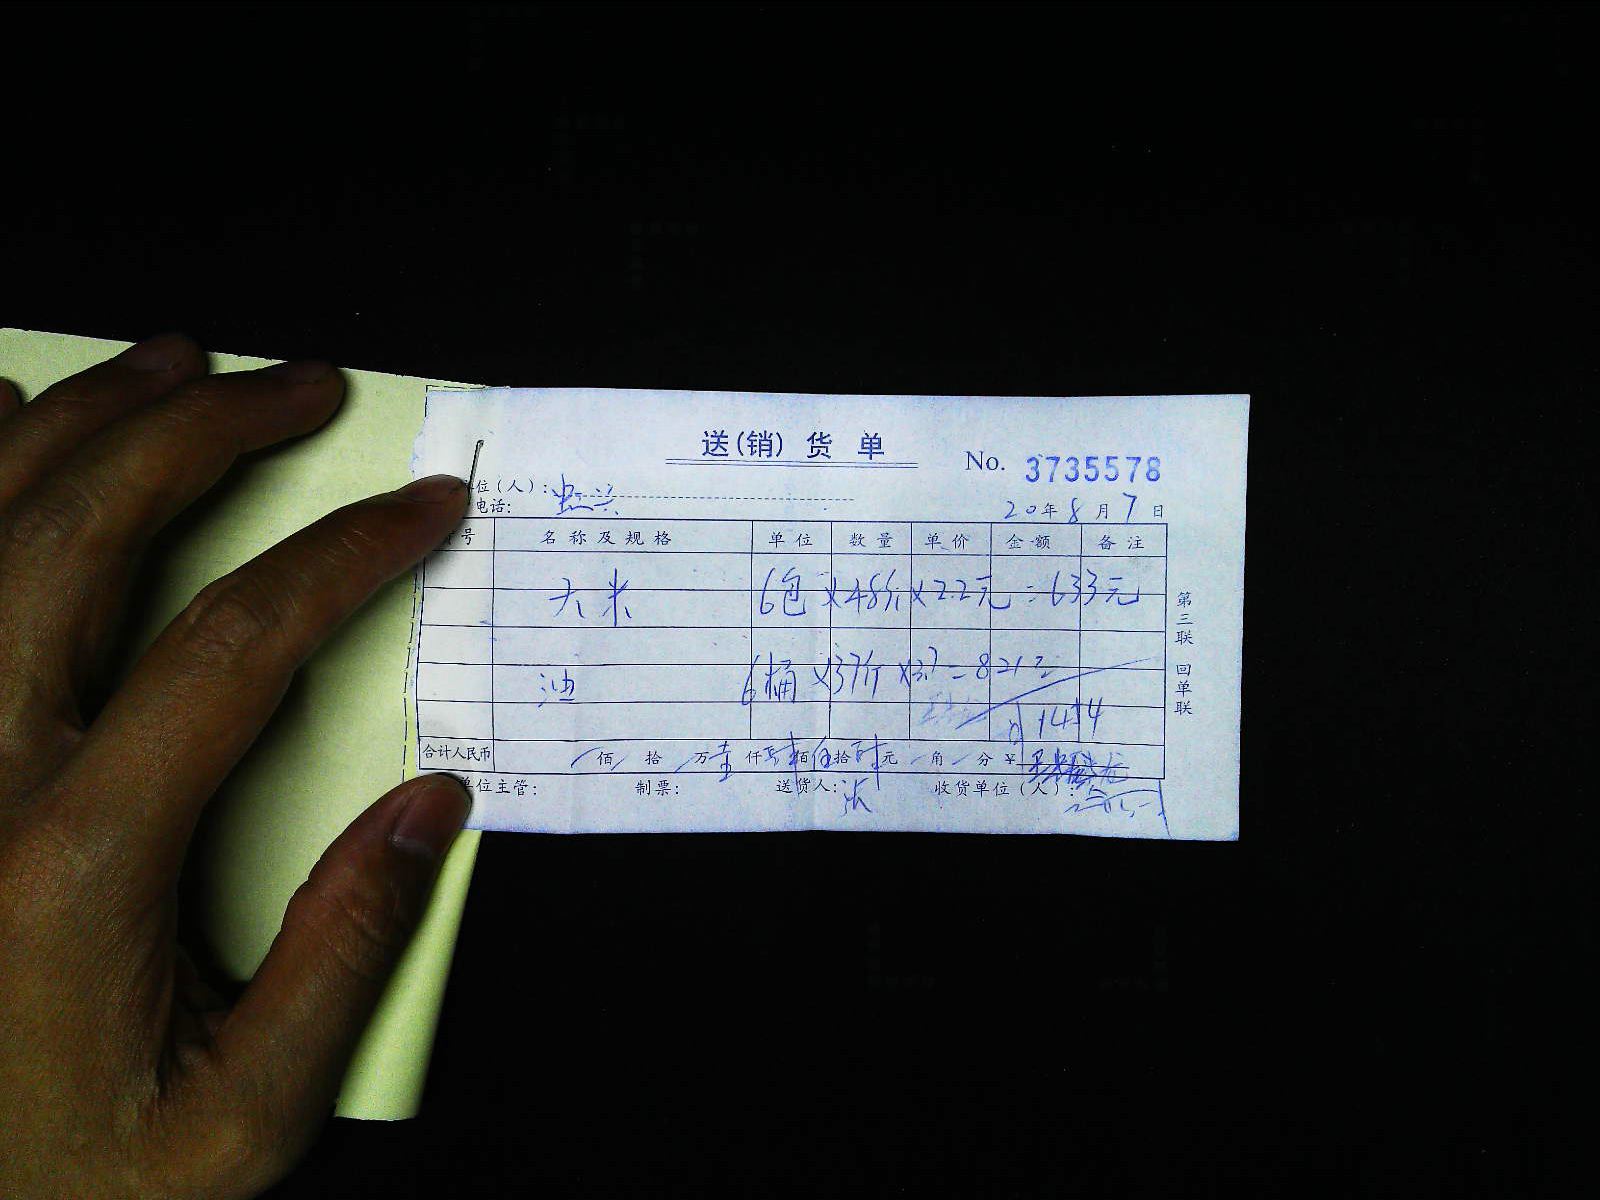 送(销)货单
No. 3735578
位(人):
电话:
20年8月7日
号 名称及规格 单位 数量 单价 金额 备注
大米 6包×48斤×2.2元=633元
油 6桶×37斤×3.7=821元
1454
合计人民币 佰 拾 万壹仟 佰伍拾 元 角 分 ¥
单位主管: 制票: 送货人:张 收货单位(人):
第三联 回单联